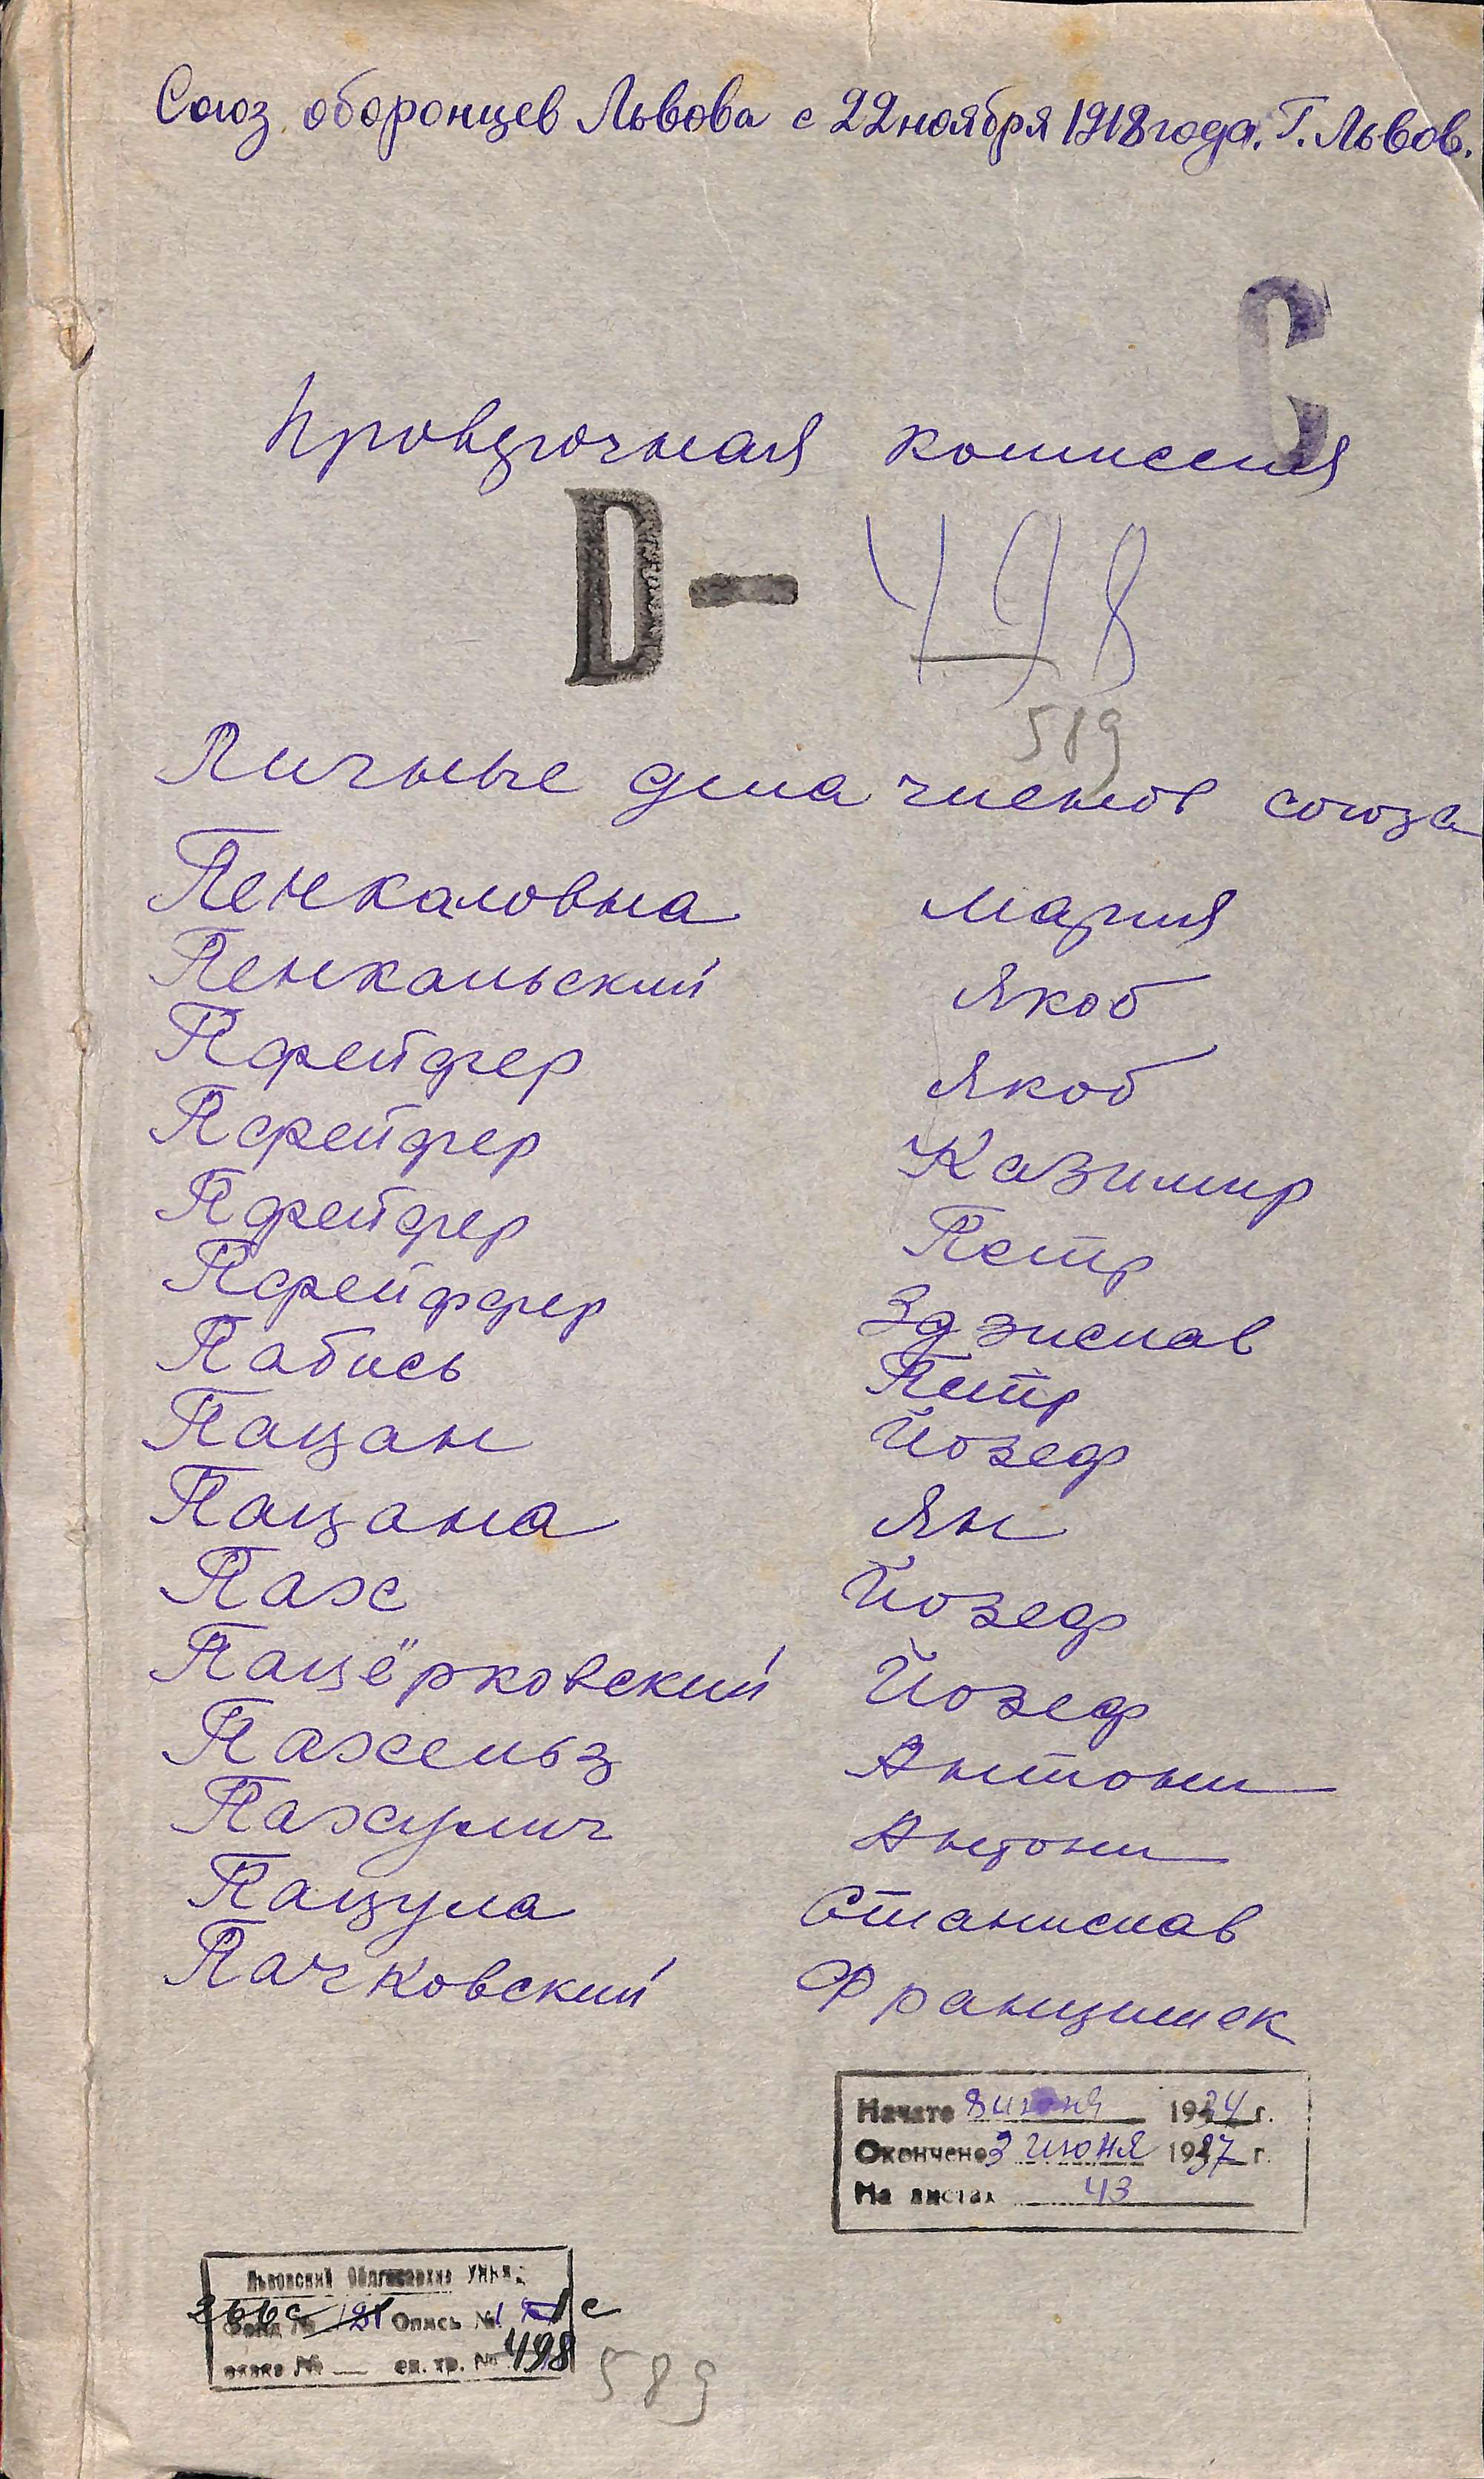 Союз оборонцев Львова с 22 ноября 1918 года. Г. Львов.
С
Проверочная комиссия
D- 498
589
Личные дела членов союза
Пенкаловна Мария
Пенкальский Якоб
Пфейфер Якоб
Пфейфер Казимир
Пфейфер Петр
Пфейффер Здзислав
Пабись Петр
Пацан Йозеф
Пацана Ян
Пах Йозеф
Пацёрковский Йозеф
Пахельз Антони
Пахулич Антони
Пацула Станислав
Пачковский Францишек
Начато 8 июня 1934 г.
Окончено 3 июня 1937 г.
На листах 43
Львовский Облгосархив УНКВД
266с Фонд № 181 Опись № 1 1с
связка № — ед. хр. № 498
589